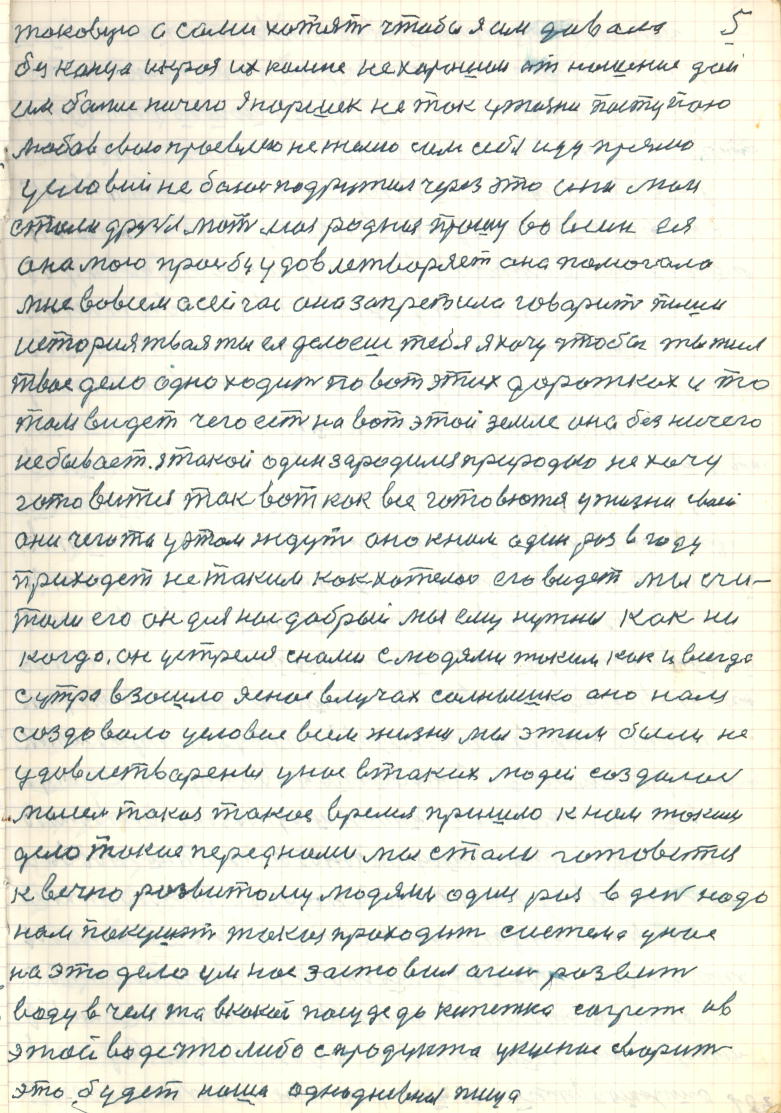 токовую а сами хотят чтобы я им давала 5
без конца и края их ко мне нехорошии отношение дай
им боли ничего я поршек не так у жизни поступаю
любов свою проевляю не жалею сам себя иду прямо
условий не боюс подружил через это они мои
стали друзя мат моя родная прошу во всим ея
она мою прозбу удовлетворяет она помогала
мне вовсем а сейчас она запретила говарит пиши
история твая ты ея делоеш тебя я хочу чтобы ты жил
твое дело одно ходит по вот этих дорожках и то
там видет чего ест на вот этой земле она без ничего
небывает. я такой один зародился природою не хочу
готовится так вот как все готовются у жизни своей
они чегото у этом ждут оно к нам один раз в году
приходет не таким как хотелос его видет мы счи-
тали его он для нас добрый мы ему нужны как ни
когда. он устрелся снами с людями таким как и всегда
с утра взошло ясное влучах солнышко оно нам
создовало условие всем жизни мы этим были не
удовлетварены у нас втаких людей создалос
мысля такая такое время пришло к нам таким
дело такое перед нами мы стали готовится
к вечно розвитому людями один раз в ден надо
нам покушат такая проходит система у нас
на это дело умнас застовил огон розвит
воду в чем та в какой посуде до кипетка согрет и в
этой воде что либо с продукта укусное сварит
это будет наша однодневная пища